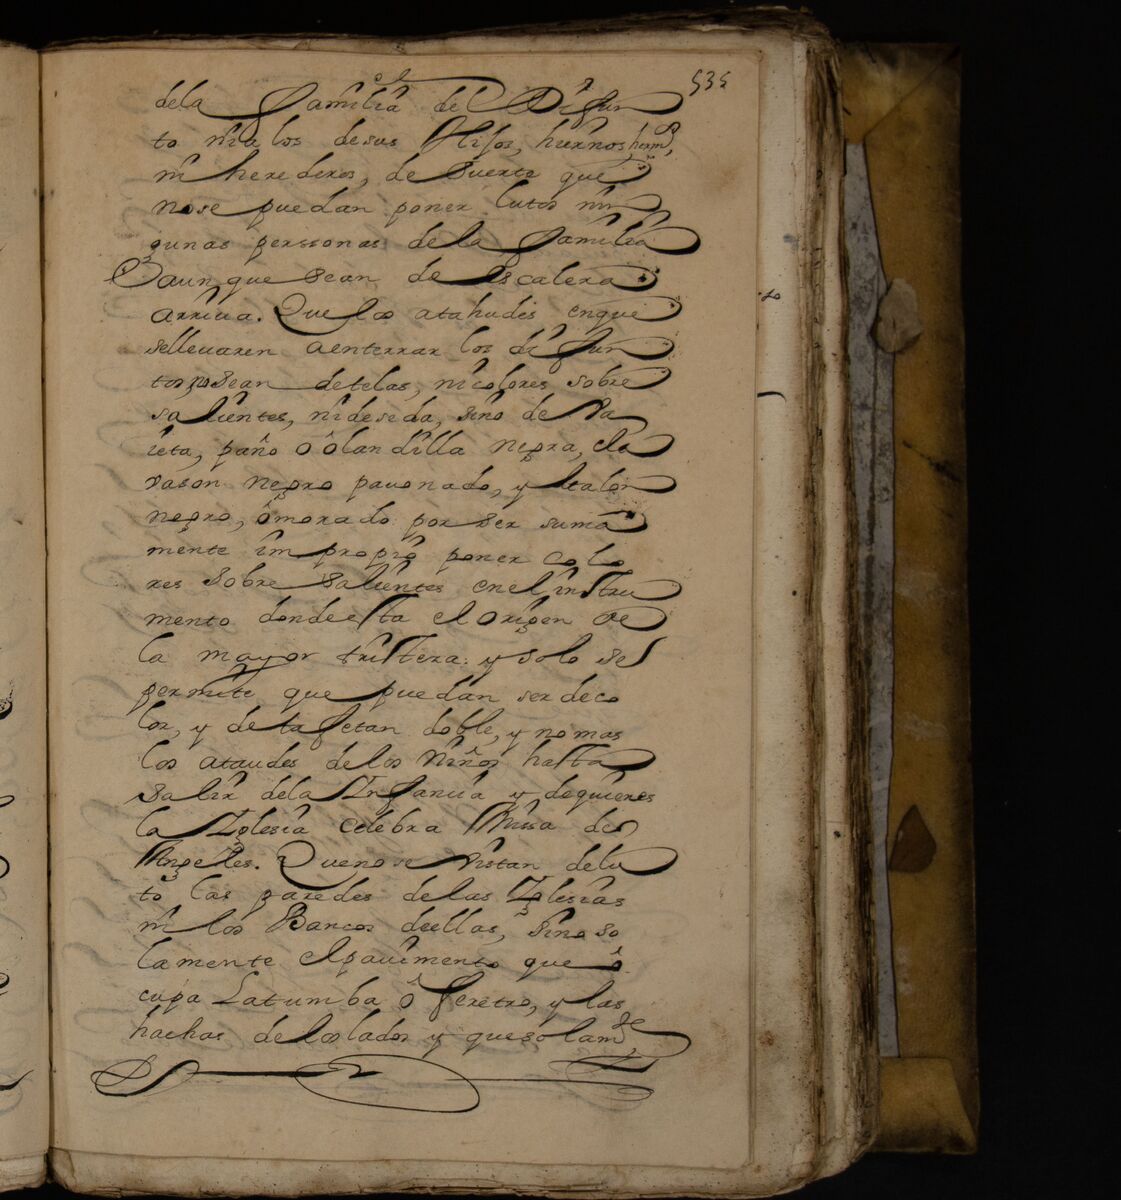 535
dela familia del Difun
to ni a los desus Hijos, hiernos, herm.s,
ni herederos, de Suerte que
nose puedan poner lutos nin
gunas perssonas de la familia
aunque sean de Escalera
arriua. Que los atahudes enque
selleuaren aenterrar los difun
tos, no sean detelas, ni colores sobre
salientes, ni deseda, sino de Va
ieta, paño ó ôlandilla negra, cla
vason negro pauonado, y Galon
negro, ômorado por ser suma
mente impropio poner colo
res sobre salientes enel instru
mento donde esta el origen de
la mayor tristera: y solo se
permite que puedan ser deco
lor, y de tafetan doble, y no mas
los ataudes de los Niños hasta
salir dela Infancia y dequienes
la Iglesia celebra Missa de
Angeles. Quenose vistan delu
to las paredes de las Iglesias
ni los Bancos deellas, sino so
lamente el pauimento que ô
cupa Latumba ô feretro, y las
hachas de los lados y que solam.te